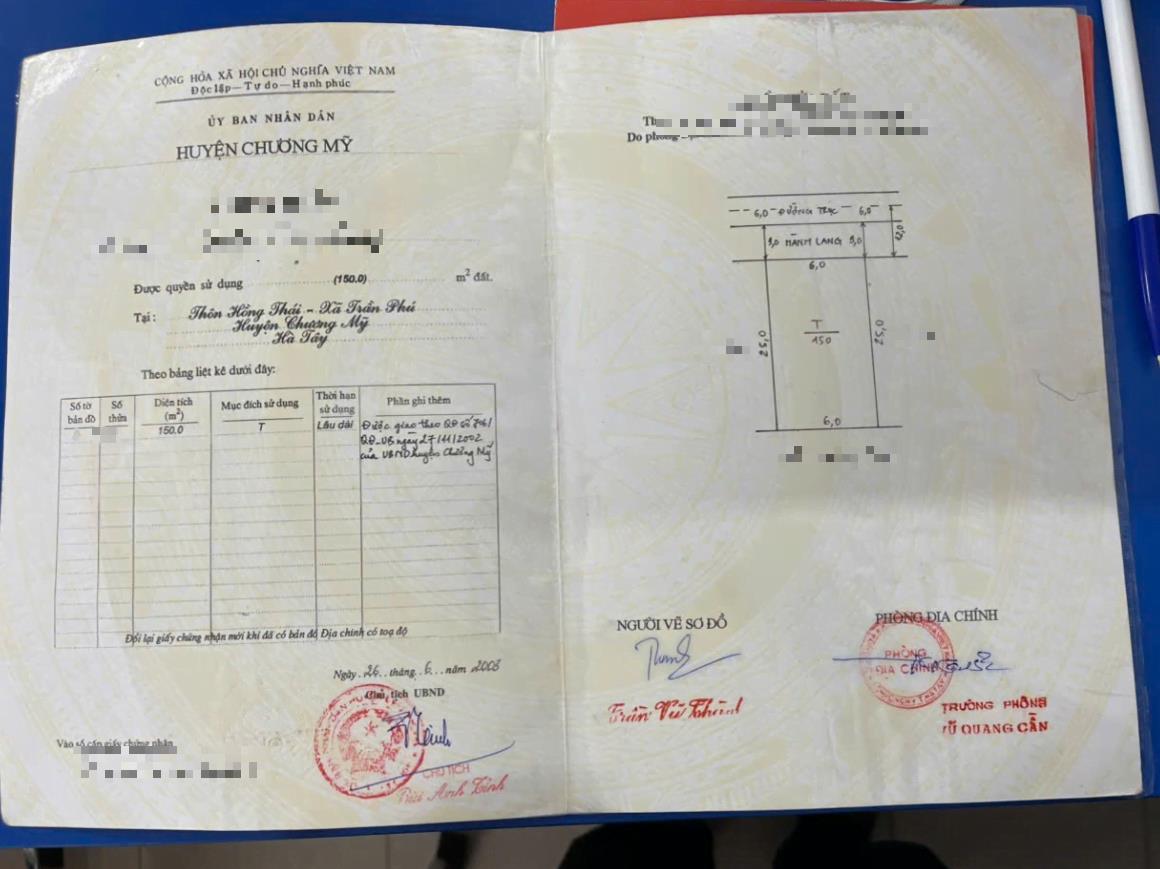 CỘNG HÒA XÃ HỘI CHỦ NGHĨA VIỆT NAM
Độc lập—Tự do—Hạnh phúc
ỦY BAN NHÂN DÂN
HUYỆN CHƯƠNG MỸ
Được quyền sử dụng (150.0) m² đất.
Tại: Thôn Hồng Thái - Xã Trần Phú
Huyện Chương Mỹ
Hà Tây
Theo bảng liệt kê dưới đây:
Số tờ bản đồ Số thửa Diên tích (m²) Mục đích sử dụng Thời hạn sử dụng Phần ghi thêm
150.0 T Lâu dài Được giao theo QĐ số
QĐ-UB ngày 27/11/2002
của UBND huyện Chương Mỹ
Đổi lại giấy chứng nhận mới khi đã có bản đồ Địa chính có toạ độ
Ngày 26 tháng 6 năm
Chủ tịch UBND
CHỦ TỊCH
Vào sổ cấp giấy chứng nhận
Do phòng
6,0 ĐƯỜNG TRỤC 6,0
HÀNH LANG
6,0
25,0
T
150
25,0
6,0
NGƯỜI VẼ SƠ ĐỒ
PHÒNG ĐỊA CHÍNH
PHÒNG
ĐỊA CHÍNH
Trần Vũ Thành
TRƯỞNG PHÒNG
VŨ QUANG CẦN